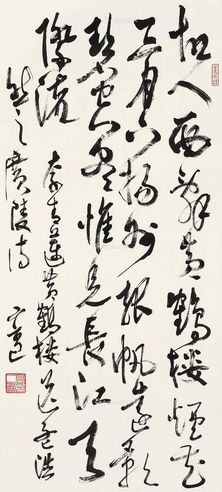 故人西辭黃鶴樓煙花
三月下揚州孤帆遠影
碧空盡惟見長江天
際流
李青蓮黃鶴樓送孟浩
然之廣陵詩